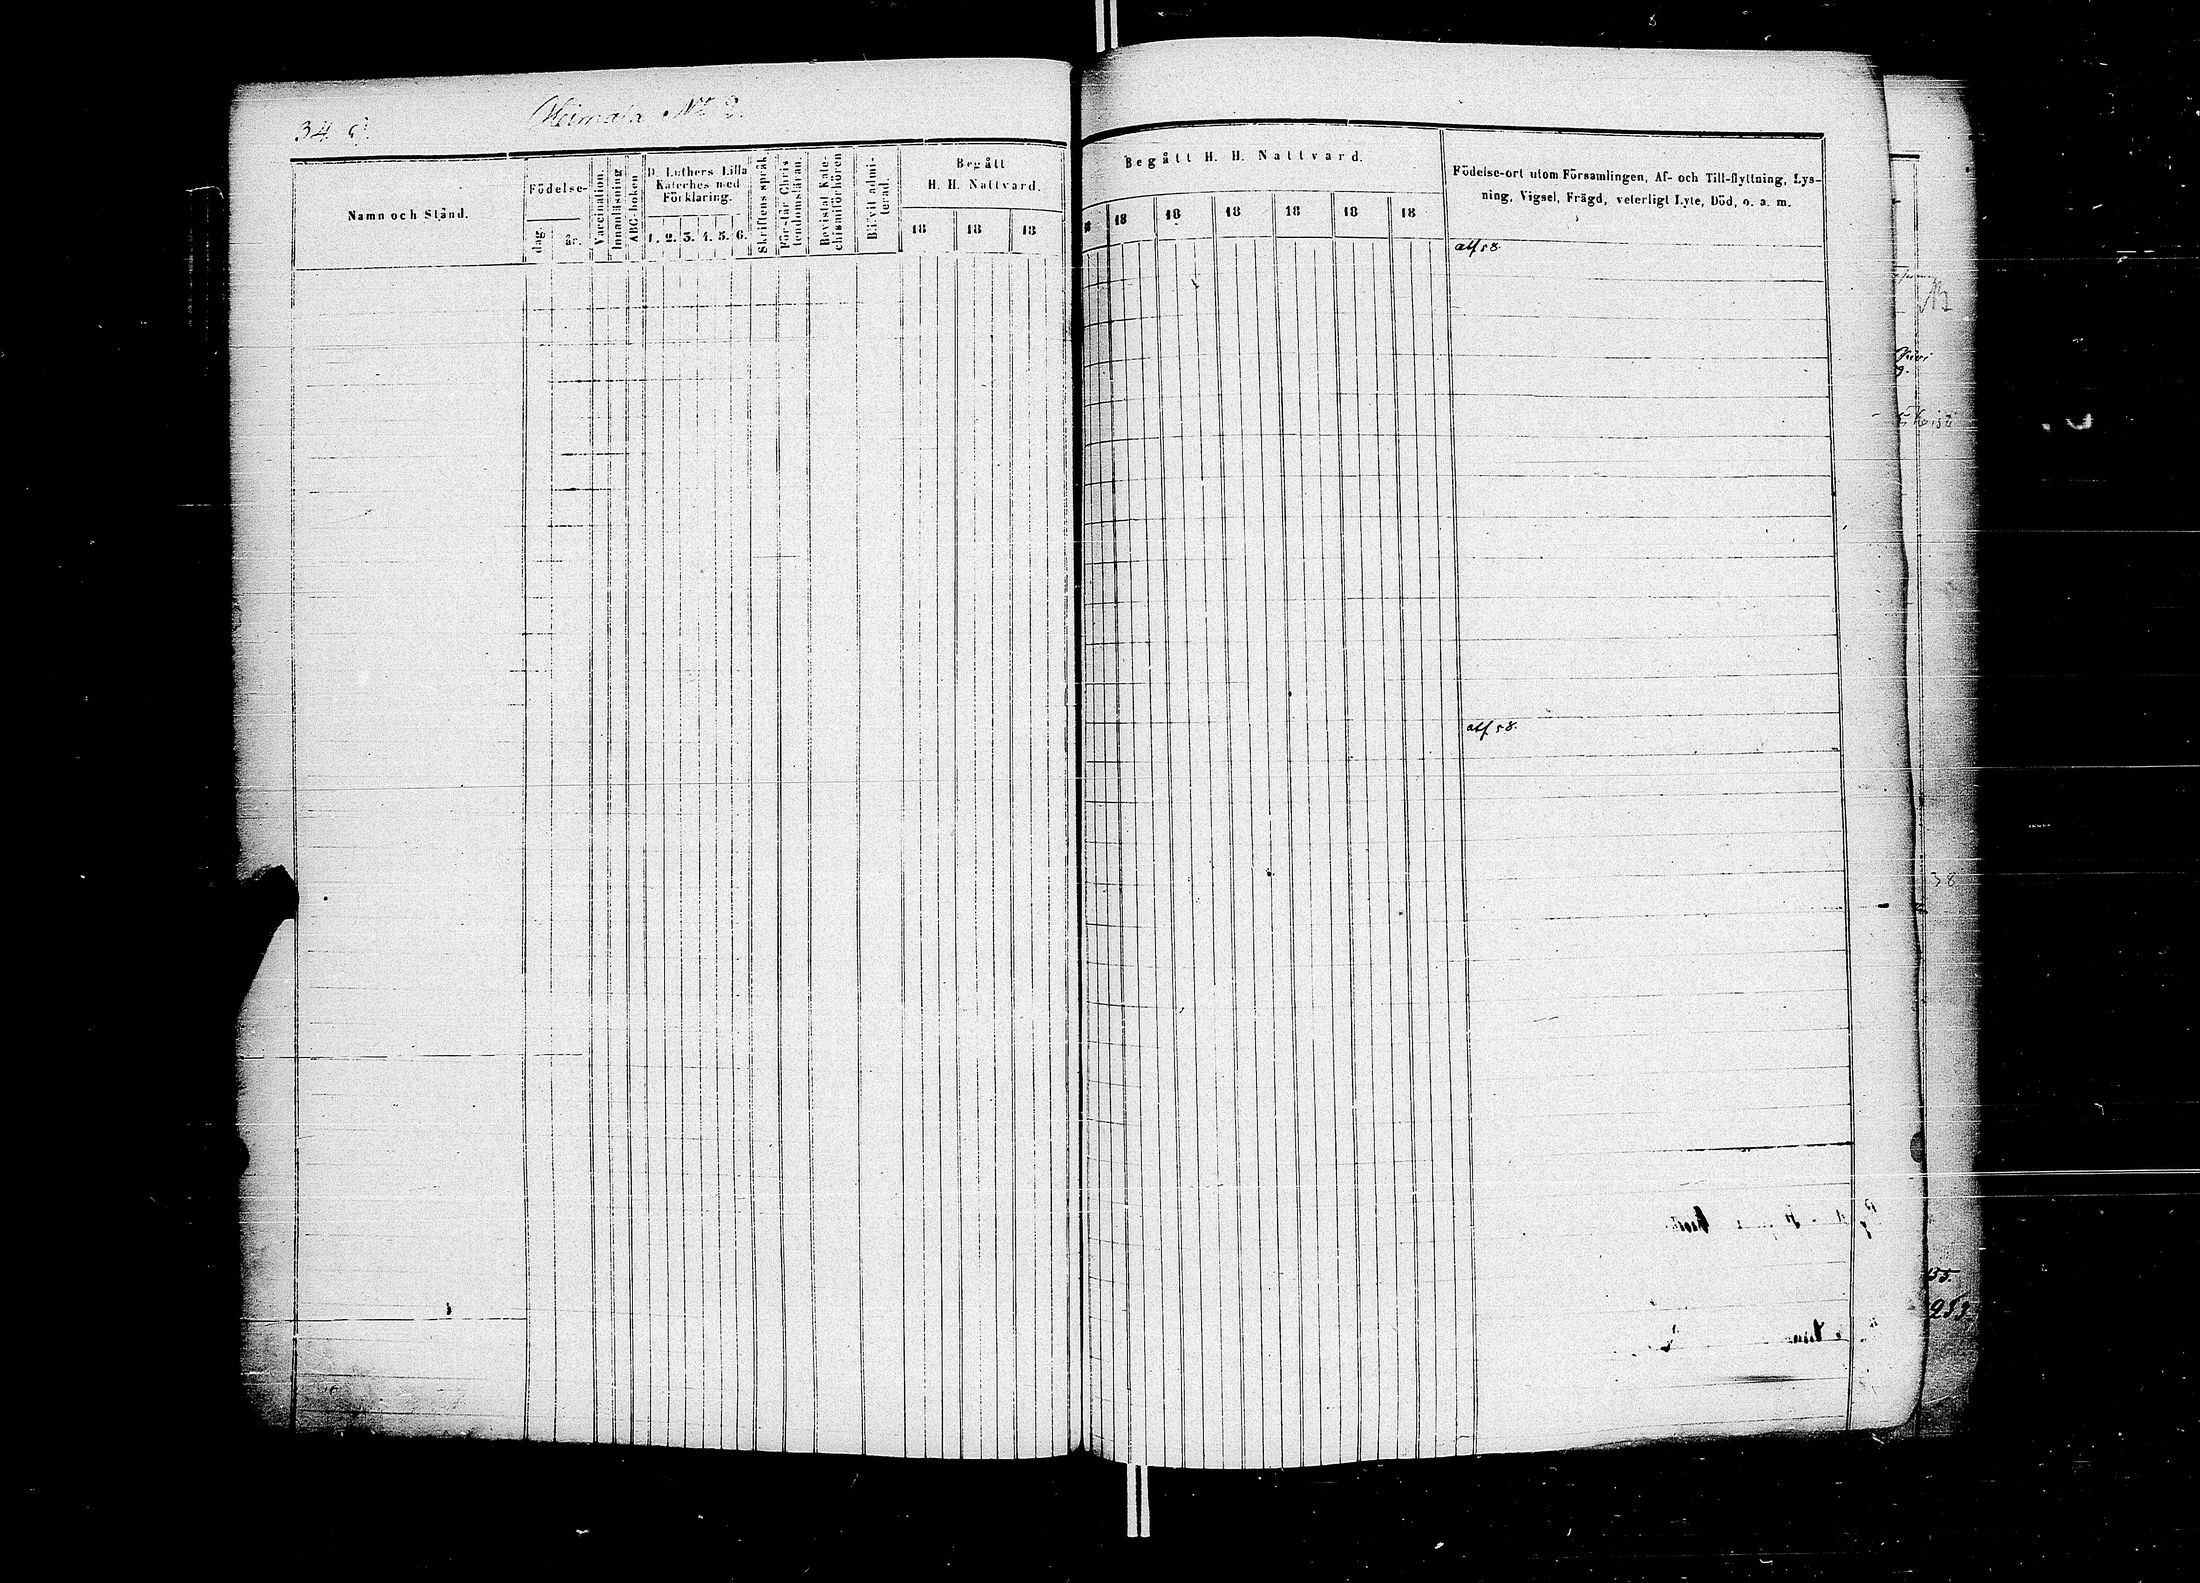 34
Heimala No 2.
Namn och Stånd.
Födelse-
dag
år.
Vaccination.
Innanläsning
ABC-boken
D. Luthers Lilla
Kateches med
Förklaring.
1. 2. 3. 4. 5. 6.
Skriftens språk
Förstår Chris
tendomsläran.
Bevistat Kate-
chismiförhören
Blifvit admi-
terad.
Begått
H. H. Nattvard.
18 18 18
Begått H. H. Nattvard.
18 18 18 18 18 18 18
Födelse-ort utom Församlingen, Af- och Till-flyttning, Lys-
ning, Vigsel, Frägd, veterligt Lyte, Död, o. a. m.
att 58.
att 58.
38
55.
253